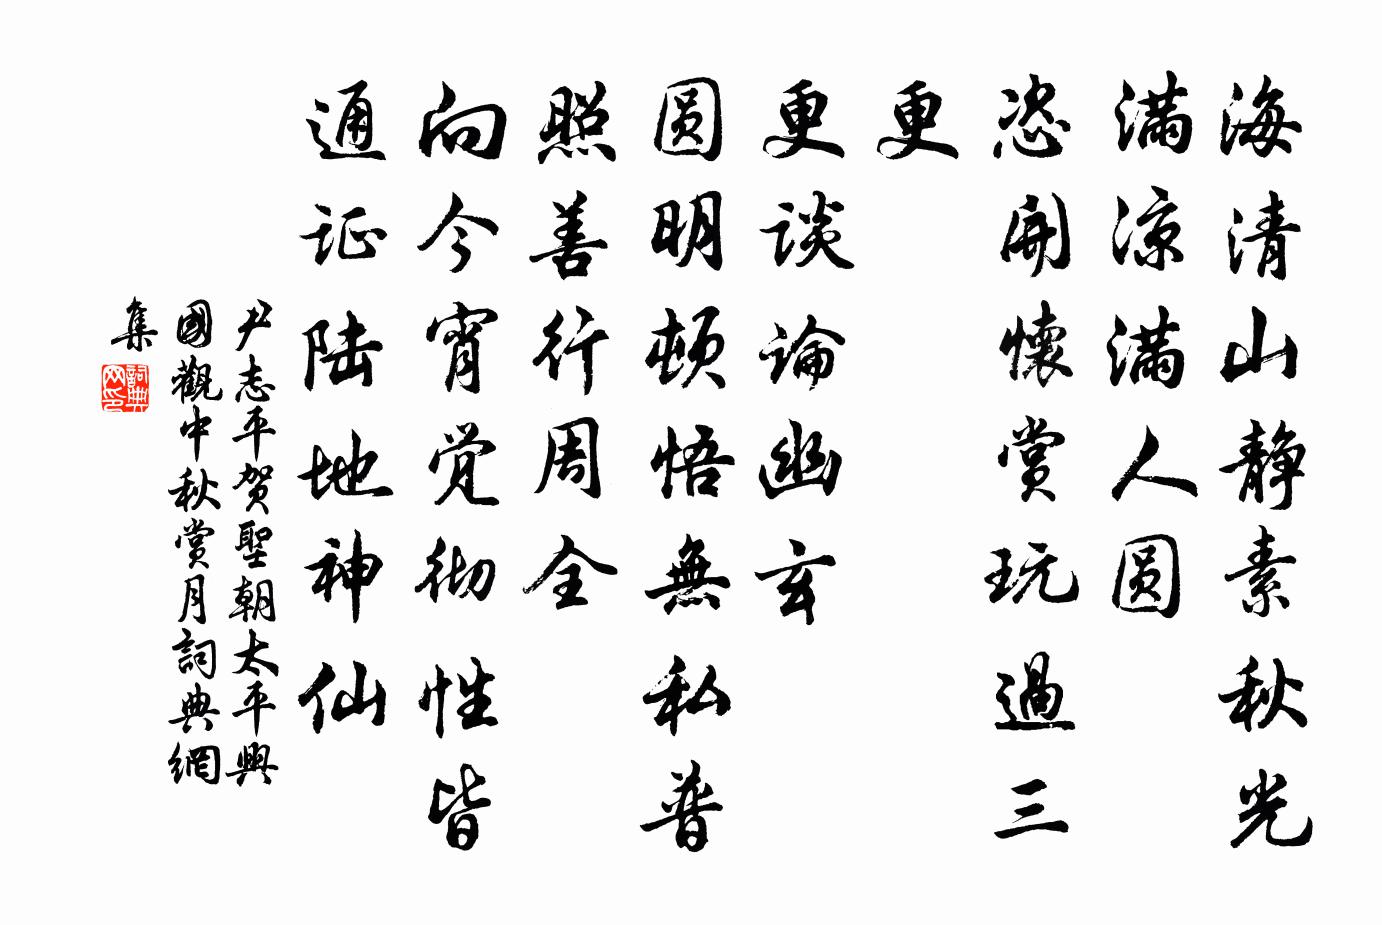 海清山静素秋光
满凉满人圆
恣開懷赏玩過三
更
更谈論幽玄
圆明顿悟無私普
照善行周全
向今宵觉彻性皆
通证陆地神仙
尹志平贺聖朝太平興
國觀中秋赏月詞典網
集
詞典网印